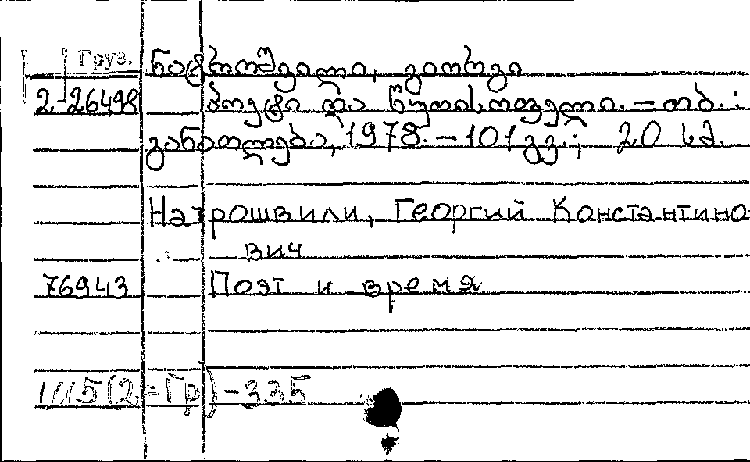 Груз. ნატროშვილი, გიორგი
2-26498 პოეტი და წუთისოფელი. – თბ.:
განათლება, 1978. – 101 გვ.; 20 სმ.
Натрошвили, Георгий Константино
вич
76943 Поэт и время
Ш5(2=Гр)-335